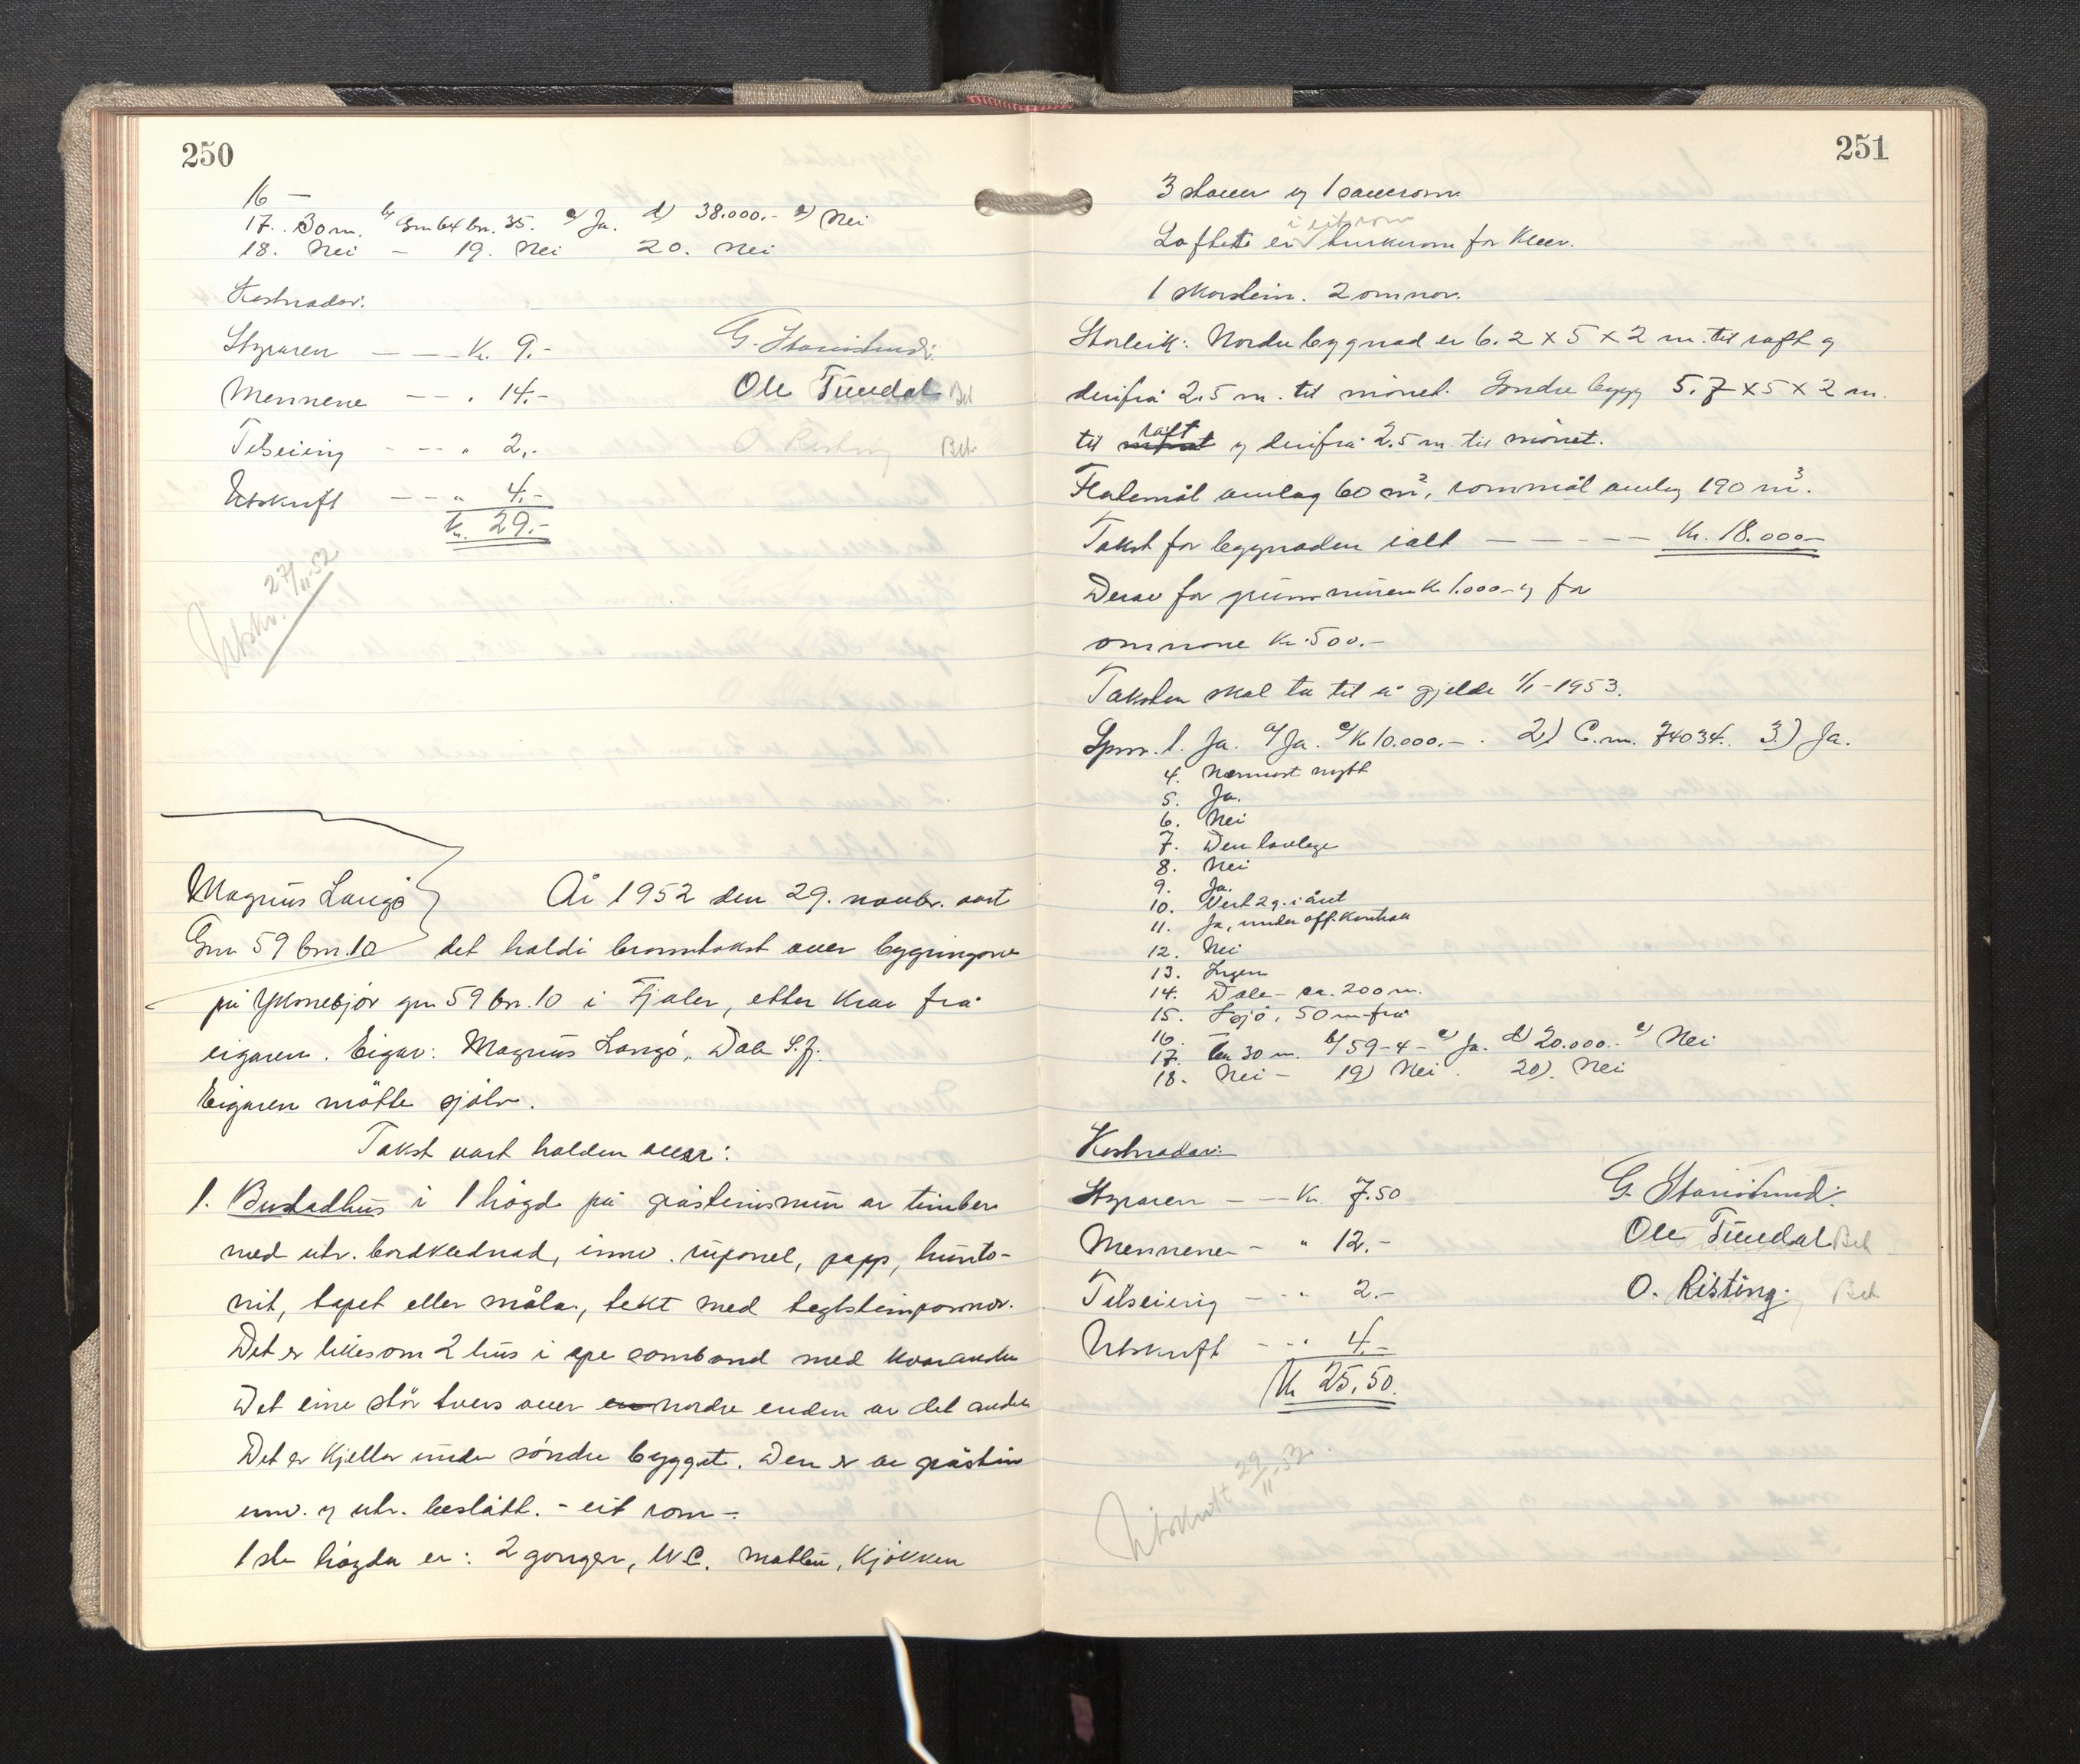 250
16 —
17. 30 m. b) Gnr 64 bn. 35. c) Ja. d) 38.000.- e) Nei
18. Nei – 19. Nei 20. Nei
Kostnader:
Styraren — — Kr. 9.-
Mennene — — " 14.-
Tilseiing - -- " 2.-
Utskrift — - " 4.-
Kr. 29.-
Ole Tundal Bet
O. Risting Bet.
Utskr. 27/11-52
Magnus Langø
Gnr 59 bnr. 10
År 1952 den 29. novbr. vart
det haldi branntakst over bygningane
på Yksnebjør gnr 59 bnr. 10 i Fjaler, etter krav frå
eigaren. Eigar: Magnus Langø, Dale S.fj.
Eigaren møtte sjølv.
Takst vart halden over:
1. Bustadhus i 1 høgd på gråsteinsmur av timber
med utv. bordklednad, innv. rupanel, papp, hunto-
nit, tapet eller måla, tekt med teglsteinpannor.
Det er likesom 2 hus i ope samband med kvarandre
Det eine står tvers over en nordre enden av det andre
Det er kjellar under søndre bygget. Den er av gråstein
innv. og utv. beslått. - eit rom -.
1ste høgda er: 2 gonger, W.C. matbu, kjøkken
251
3 stover og 1 soverom
Loftet er i eit rom turkerom for klær.
1 skorstein. 2 omnar.
Storleik: Nordre bygnad er 6.2 x 5 x 2 m. til raft og
derifrå 2.5 m. til mønet. Søndre bygg 5.7 x 5 x 2 m.
til mønet raft og derifrå 2.5 m. til mønet.
Flatemål omlag 60 m², rommål omlag 190 m³.
Takst for bygnaden ialt — — — — — Kr. 18.000.-
Derav for grunnmuren kr 1.000.- og for
omnane kr. 500.-
Taksten skal ta til å gjelde 1/1-1953.
Spm. 1. Ja. a) Ja. c) Kr 10.000.- . 2) C.m. 74034. 3.) Ja.
4. Nærmast nytt
5. Ja.
6. Nei
7. Den lovlege
8. Nei
9. Ja.
10. Vert 2 g. i året
11. Ja, under off. kontrol
12. Nei
13. Ingen
14. Dale - ca. 200 m.
15. Sjø, 50 m frå
16.
17. Ca 30 m. b) 59-4 - c) Ja. d) 20.000.- e) Nei
18. Nei – 19) Nei . 20). Nei
Kostnader:
Styraren — — Kr. 7.50
Mennene - - " 12.-
Tilseiing - - " 2.-
Utskrift - - " 4.-
Kr 25,50.
Ole Tundal Bet
O. Risting. Bet
Utskrift 29/11-52.